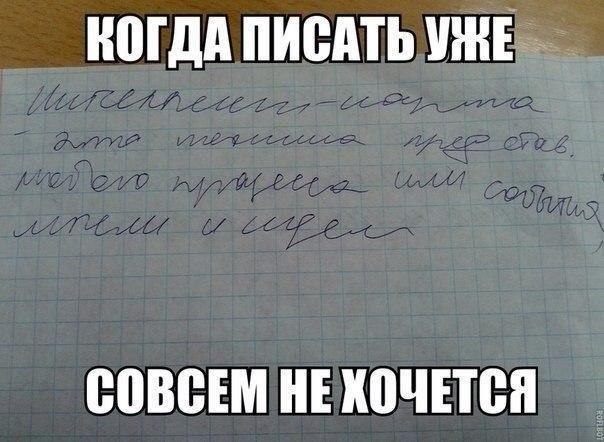 КОГДА ПИСАТЬ УЖЕ
Интеллект-карта
- это техника представ.
любого процесса или события,
мысли и идеи
СОВСЕМ НЕ ХОЧЕТСЯ